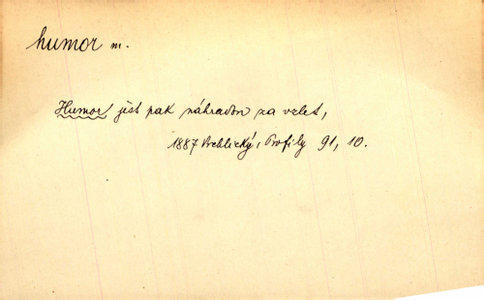 humor m.
Humor jest pak náhradou za vzlet,
1887 Vrchlický, Profily 91, 10.